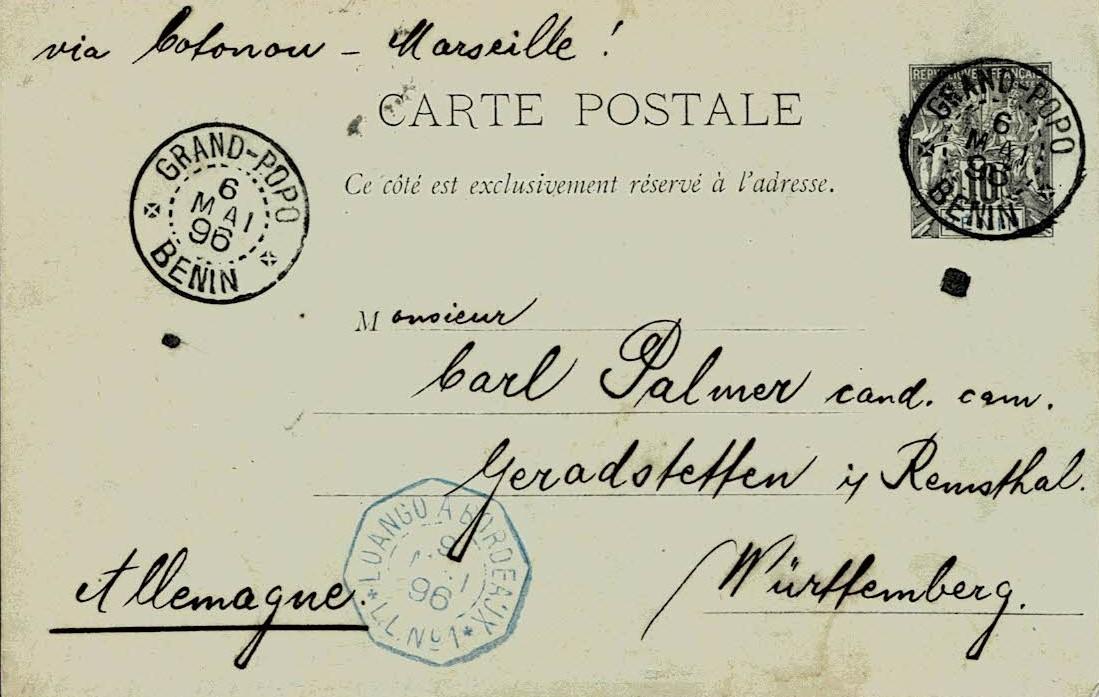 via Cotonou - Marseille !
RÉPUBLIQUE FRANÇAISE
CARTE POSTALE
Ce côté est exclusivement réservé à l'adresse.
GRAND-POPO
6
MAI
96
BENIN
GRAND-POPO
6
MAI
96
BENIN
10
Monsieur
Carl Palmer cand. cam.
Geradstetten i/ Remsthal.
Württemberg.
Allemagne.
LOANGO A BORDEAUX
96
L.L. No 1